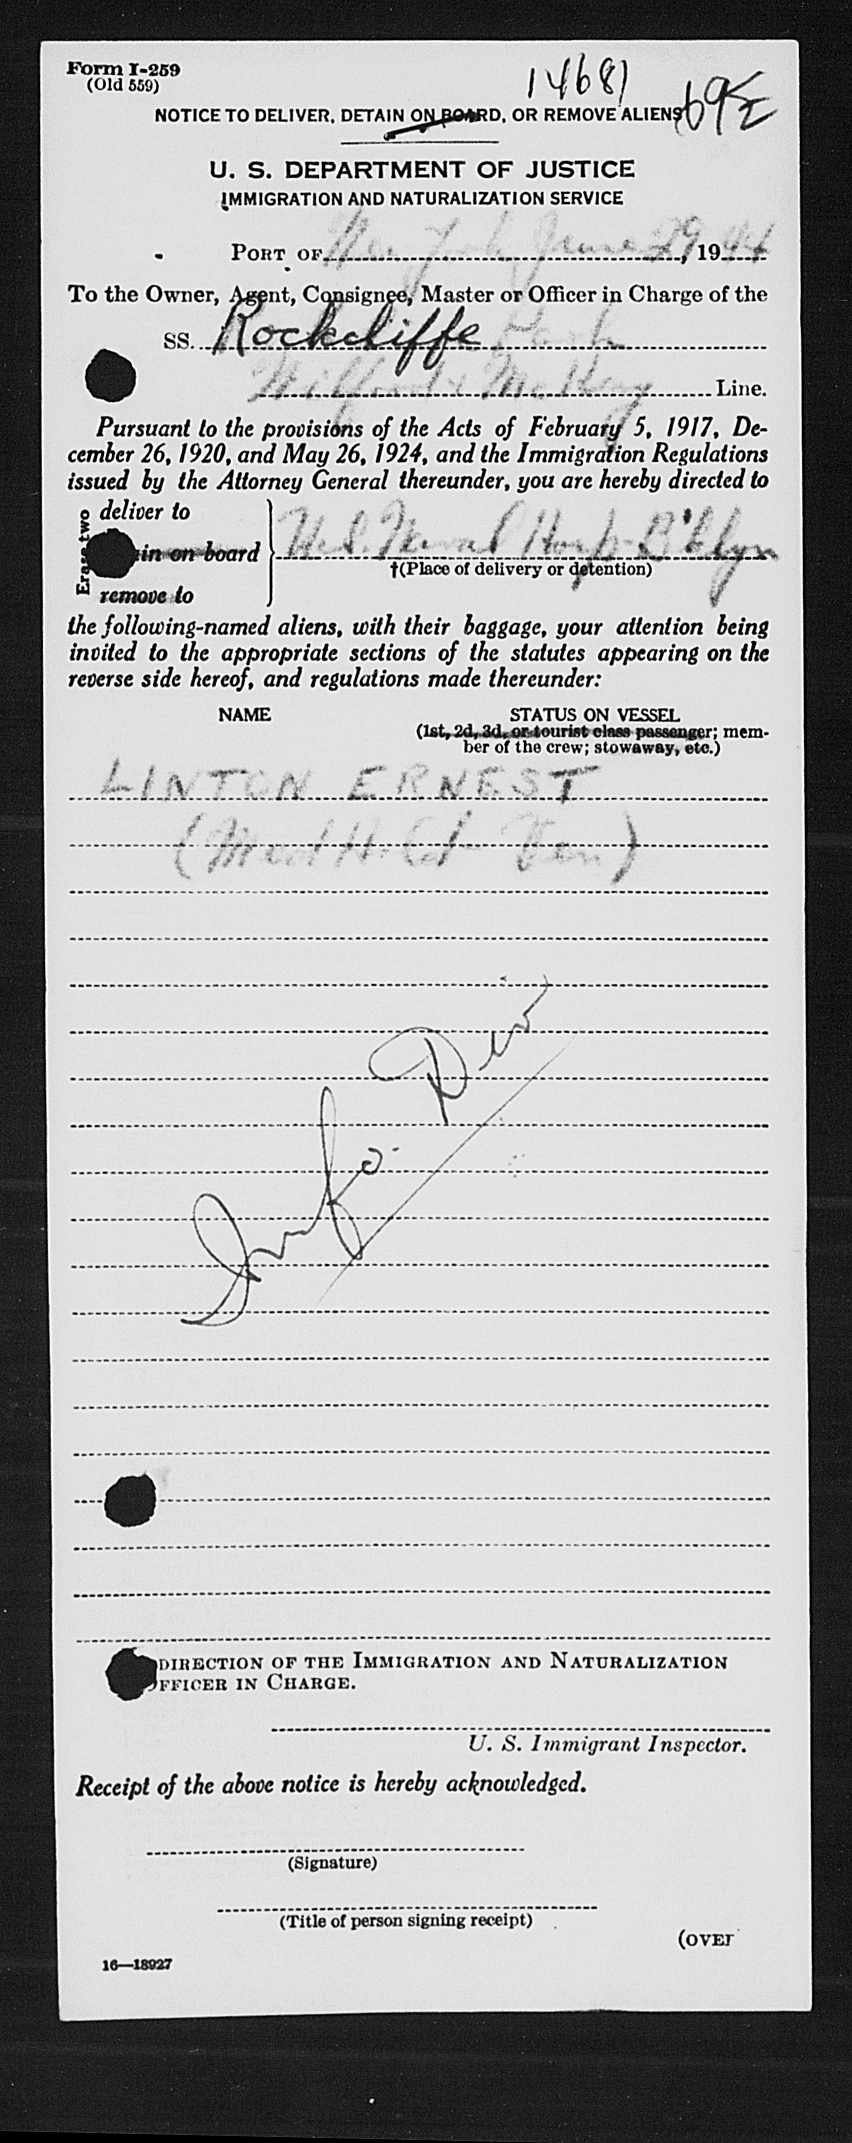 Form I-259
(Old 559)
14681
69
NOTICE TO DELIVER, DETAIN ON BOARD, OR REMOVE ALIENS
U. S. DEPARTMENT OF JUSTICE
IMMIGRATION AND NATURALIZATION SERVICE
PORT OF New York June 29, 1944
To the Owner, Agent, Consignee, Master or Officer in Charge of the
SS. Rockcliffe Park
Line.
Pursuant to the provisions of the Acts of February 5, 1917, De-
cember 26, 1920, and May 26, 1924, and the Immigration Regulations
issued by the Attorney General thereunder, you are hereby directed to
Erase two
deliver to
in on board
remove to
U.S. Naval Hosp. B'klyn
†(Place of delivery or detention)
the following-named aliens, with their baggage, your attention being
invited to the appropriate sections of the statutes appearing on the
reverse side hereof, and regulations made thereunder:
NAME STATUS ON VESSEL
(1st, 2d, 3d, or tourist class passenger; mem-
ber of the crew; stowaway, etc.)
LINTON ERNEST
(Med H. Cet Ven)
Info. Div
DIRECTION OF THE IMMIGRATION AND NATURALIZATION
OFFICER IN CHARGE.
U. S. Immigrant Inspector.
Receipt of the above notice is hereby acknowledged.
(Signature)
(Title of person signing receipt)
(OVER
16—18927